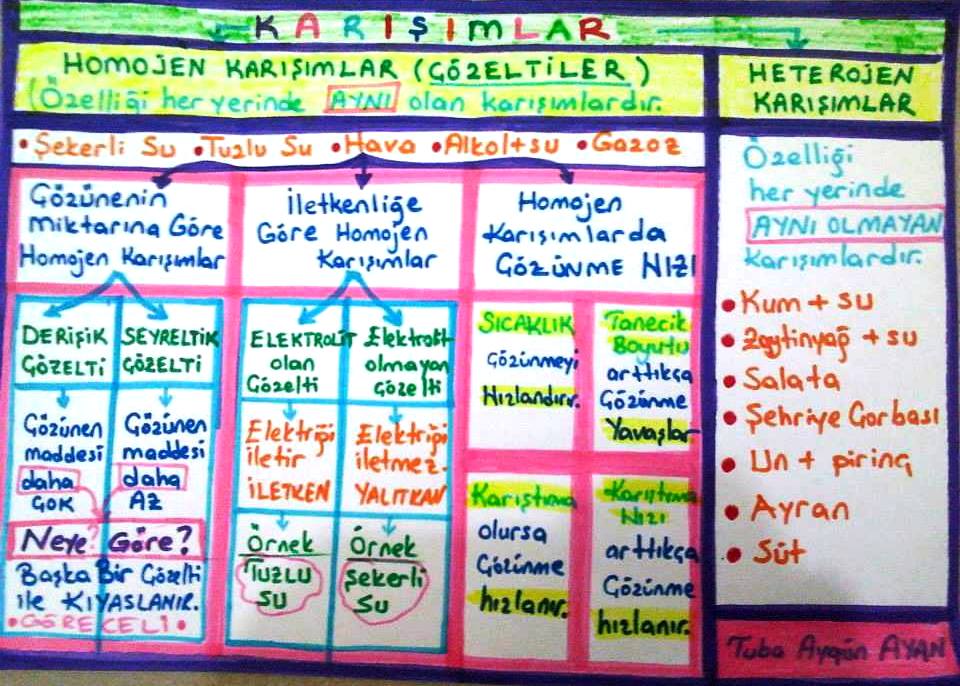 KARIŞIMLAR
HOMOJEN KARIŞIMLAR (ÇÖZELTİLER)
(Özelliği her yerinde AYNI olan karışımlardır.
• Şekerli Su • Tuzlu Su • Hava • Alkol+su • Gazoz
Çözünenin
miktarına Göre
Homojen Karışımlar
DERİŞİK
ÇÖZELTİ
Çözünen
maddesi
daha
ÇOK
SEYRELTİK
ÇÖZELTİ
Çözünen
maddesi
daha
AZ
Neye? Göre?
Başka Bir Çözelti
ile KIYASLANIR.
• GÖRECELİ •
İletkenliğe
Göre Homojen
Karışımlar
ELEKTROLİT
olan
Çözelti
Elektriği
iletir
İLETKEN
Örnek
TUZLU
SU
Elektrolit
olmayan
çözelti
Elektriği
iletmez.
YALITKAN
Örnek
Şekerli
Su
Homojen
Karışımlarda
ÇÖZÜNME HIZI
SICAKLIK
Çözünmeyi
Hızlandırır.
Tanecik
Boyutu
arttıkça
Çözünme
Yavaşlar
Karıştırma
olursa
Çözünme
hızlanır.
Karıştırma
Hızı
arttıkça
Çözünme
hızlanır.
HETEROJEN
KARIŞIMLAR
Özelliği
her yerinde
AYNI OLMAYAN
karışımlardır.
• Kum + su
• Zeytinyağ + su
• Salata
• Şehriye Çorbası
• Un + pirinç
• Ayran
• Süt
Tuba Aygün AYAN